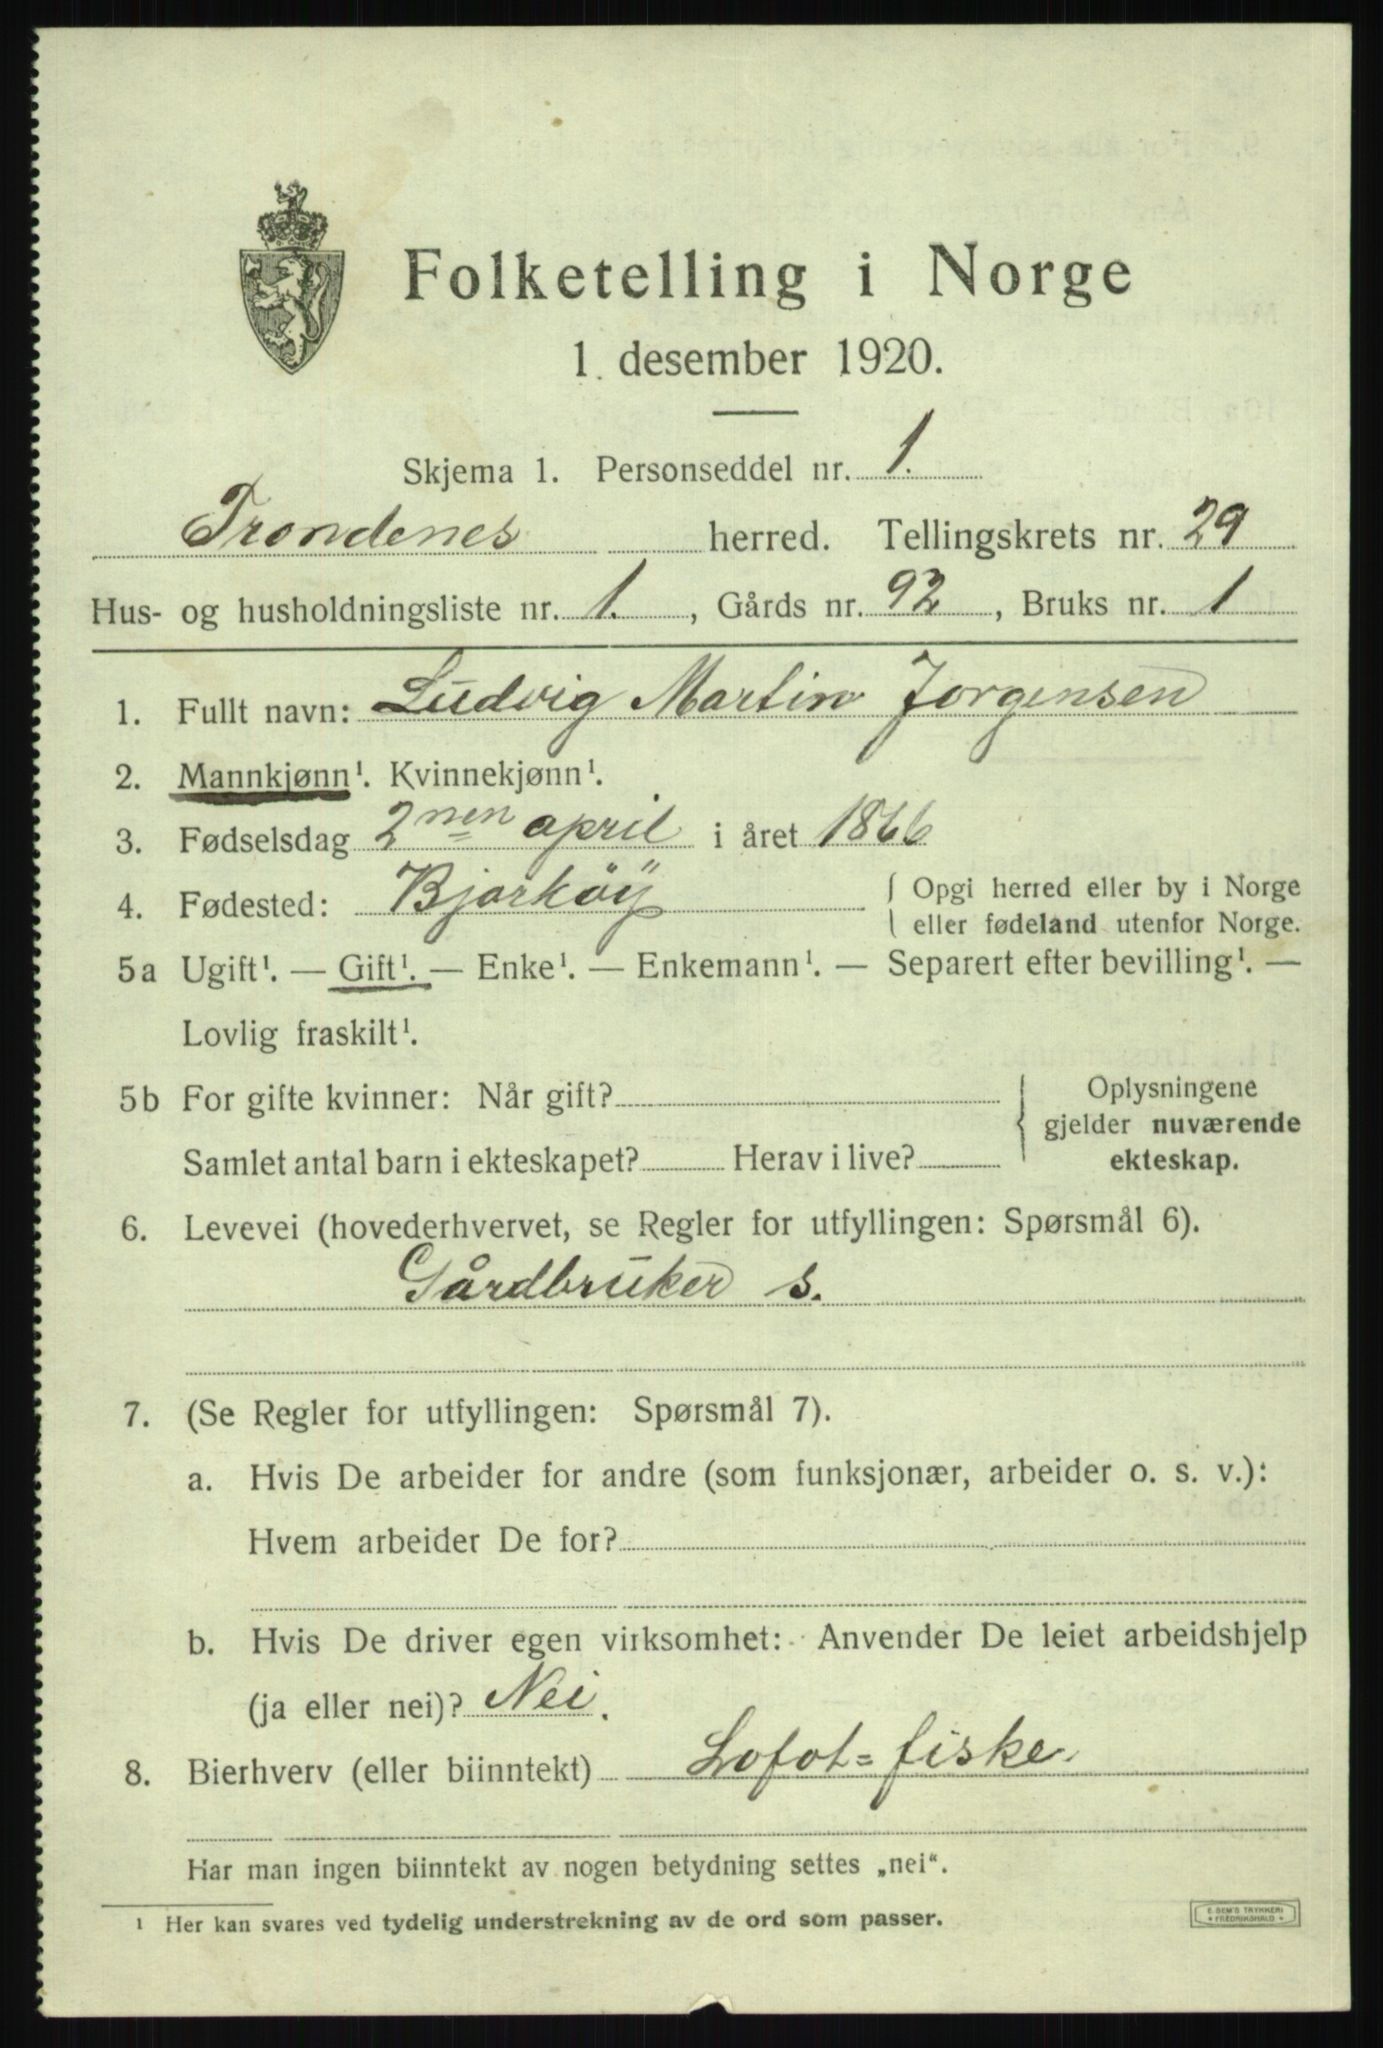 Folketelling i Norge
1. desember 1920.
Skjema 1. Personseddel nr. 1.
Trondenes herred. Tellingskrets nr. 29
Hus- og husholdningsliste nr. 1. , Gårds nr. 92 , Bruks nr. 1
1. Fullt navn: Ludvig Martin Jorgensen
2. Mannkjønn¹. Kvinnekjønn¹.
3. Fødselsdag 2nen april i året 1866
4. Fødested: Bjarköy { Opgi herred eller by i Norge
eller fødeland utenfor Norge.
5a Ugift¹. — Gift¹. — Enke¹. — Enkemann¹. — Separert efter bevilling¹. —
Lovlig fraskilt¹.
5b For gifte kvinner: Når gift? { Oplysningene
gjelder nuværende
Samlet antal barn i ekteskapet? Herav i live? ekteskap.
6. Levevei (hovederhvervet, se Regler for utfyllingen: Spørsmål 6).
Gårdbruker s.
7. (Se Regler for utfyllingen: Spørsmål 7).
a. Hvis De arbeider for andre (som funksjonær, arbeider o. s. v.):
Hvem arbeider De for?
b. Hvis De driver egen virksomhet: Anvender De leiet arbeidshjelp
(ja eller nei)? Nei.
8. Bierhverv (eller biinntekt) Lofot=fiske.
Har man ingen biinntekt av nogen betydning settes „nei“.
¹ Her kan svares ved tydelig understrekning av de ord som passer.
E SEM'S TRYKKERI
* FREDRIKSHALD *